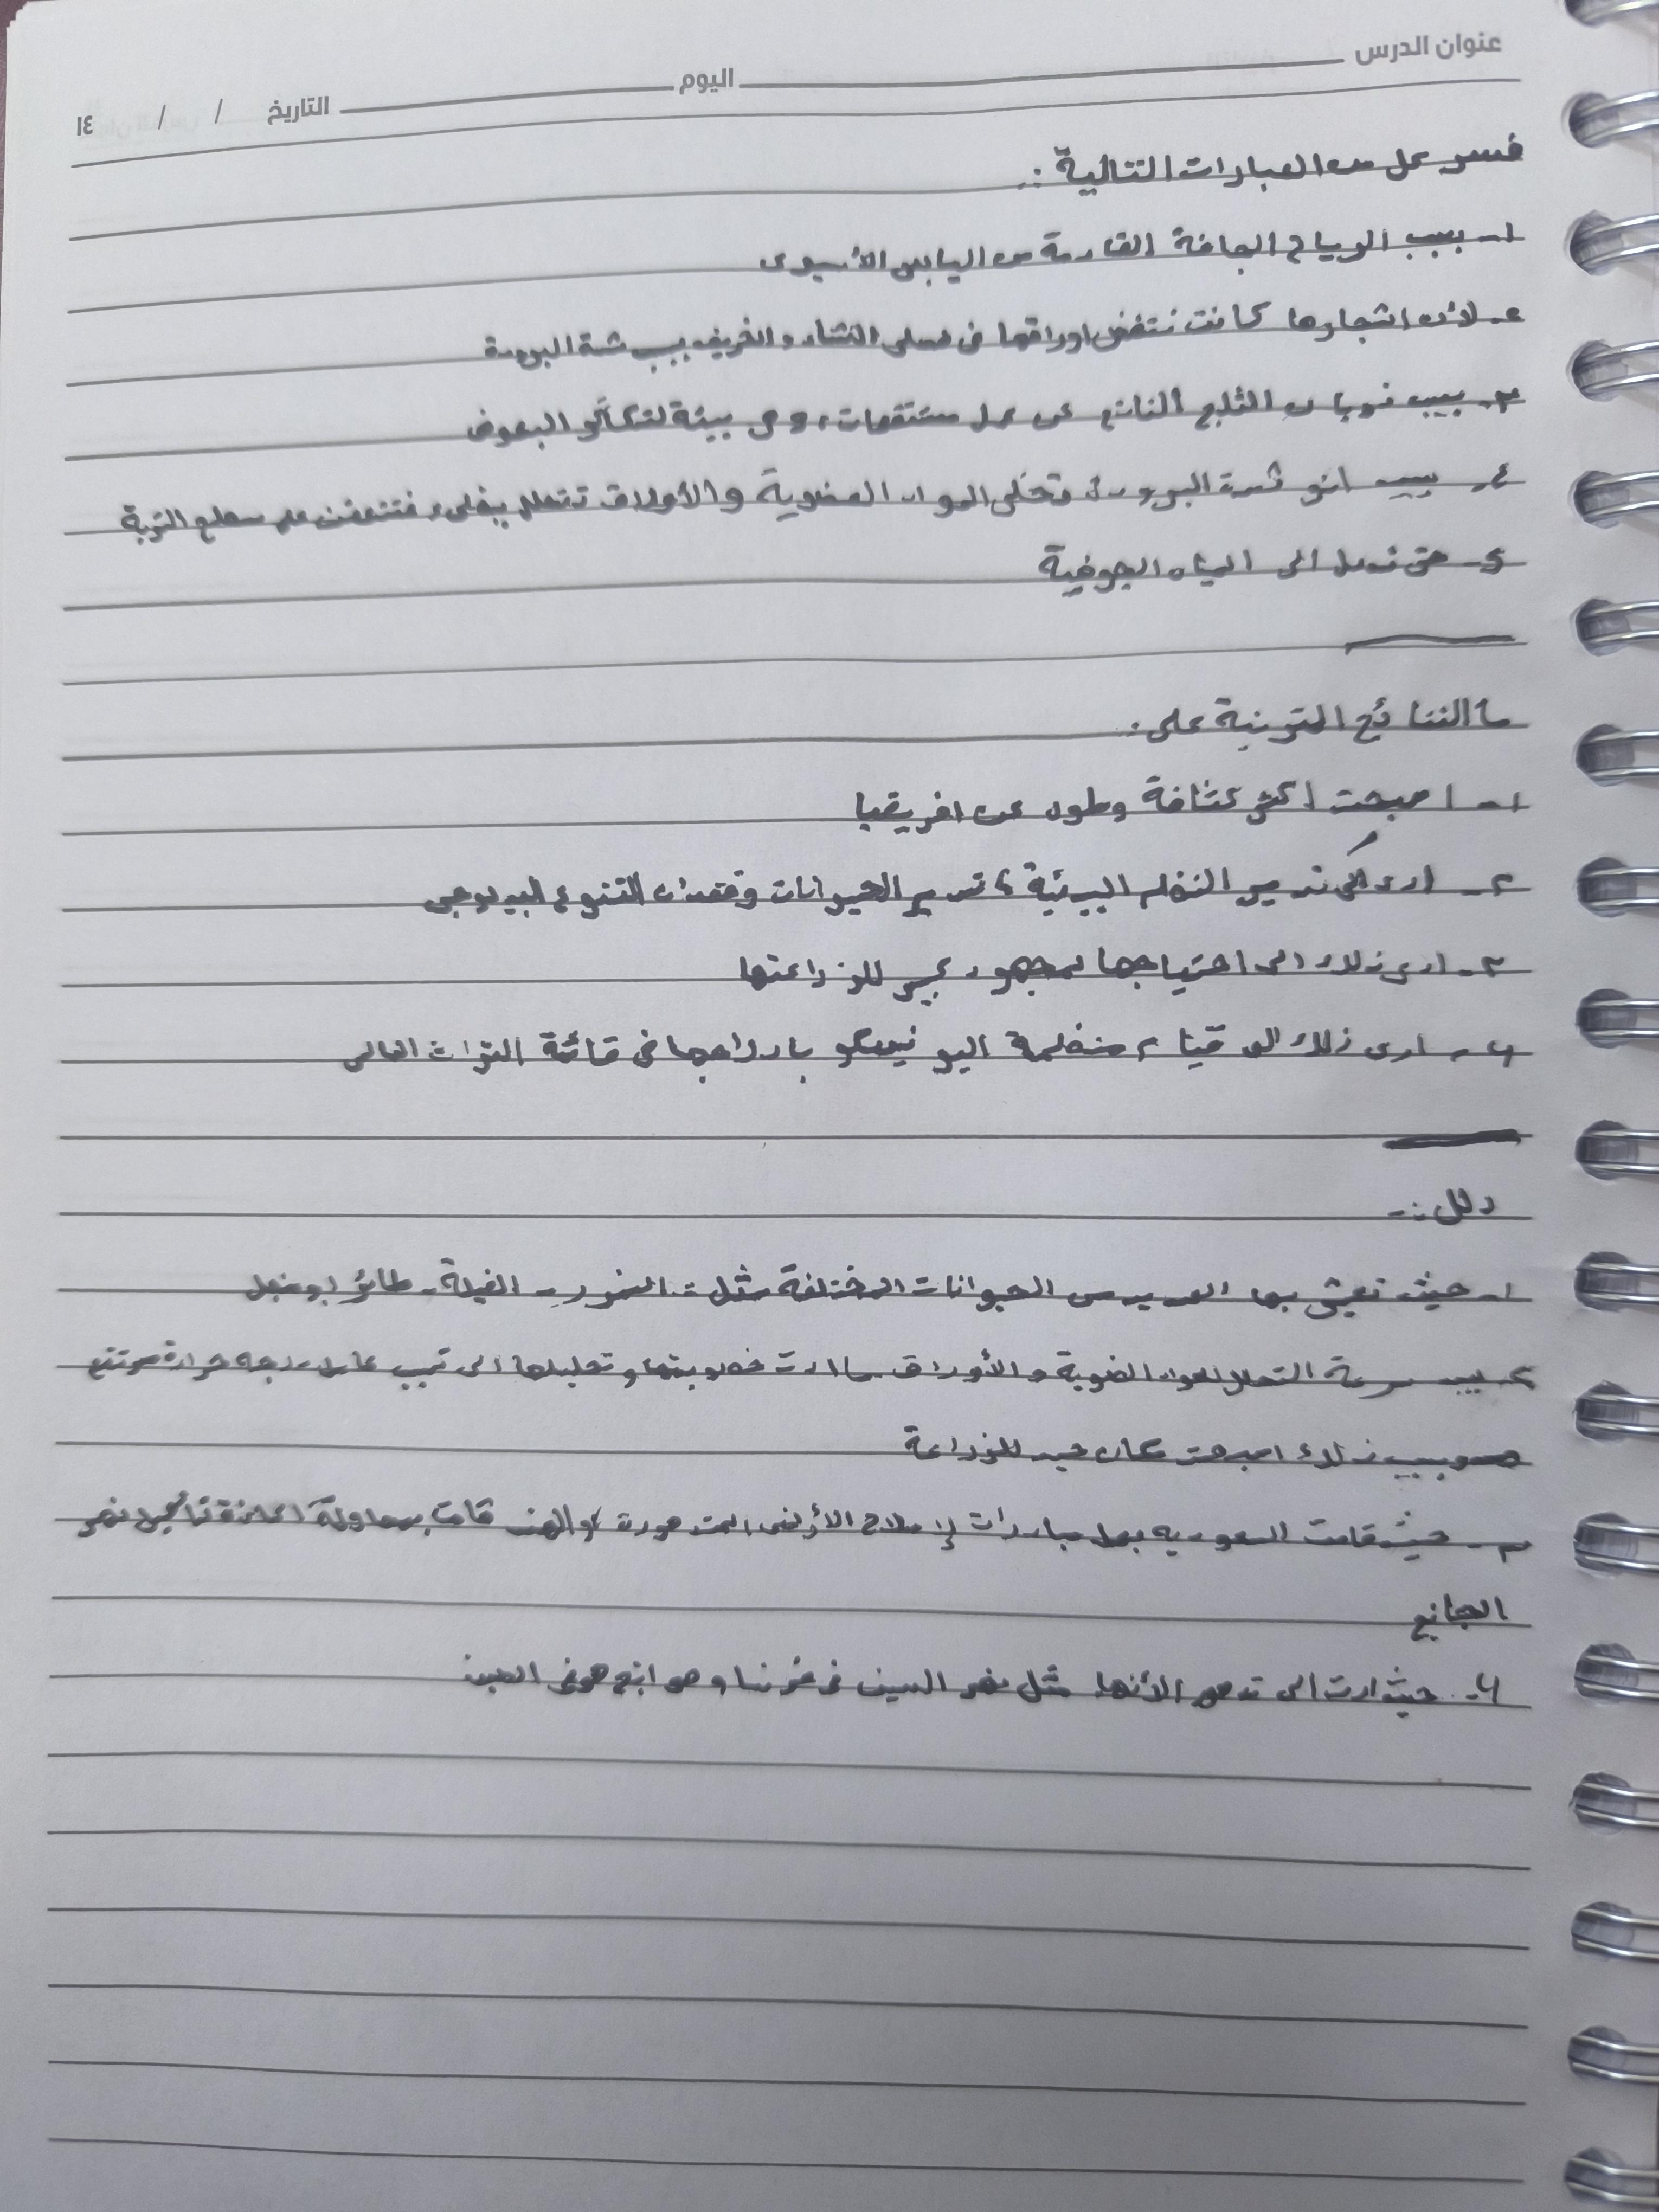 عنوان الدرس اليوم التاريخ / / ١٤
فسر كل من العبارات التتالية :.
١- بسبب الرياح الجافة القادمة من اليابس الأسيوى
٢- لأن اشجارها كانت تنتفض اوراقها فى فصلى الشتاء والخريف بسبب شدة البرودة
٣- بسبب ذوبان الثلج الناتج عن عمل مستنقعات، وهى بيئة لتكاثر البعوض
٤- بسبب شدة البرودة المواد العضوية والأوراق تتحلل ببطىء فتتعفن على سطح التربة
٥- حتى تصل الى المياه الجوفية
ما النتائج المترتبة على :
١- اصبحت اكثر كثافة وطول عن افريقيا
٢- ادى الى تدمير النظم البيئية، الحيوانات وفقدان التنوع البيولوجى
٣- ادى ذلك الى احتياجها لمجهود كبير للزراعتها
٤- ادى ذلك الى قيام منظمة اليونيسكو بادراجها فى قائمة التراث العالمى
دلل :-
١- حيث تعيش بها العديد من الحيوانات المختلفة مثل : النمور - الفيلة - طائر ابو منجل
٢- بسبب سرعة التحلل المواد العضوية والأوراق خصوبتها وتحليلها الى درجه حرارة مرتفع
وبسبب ذلك اصبحت مكان جيد للزراعة
٣- حيث قامت السعوديه بعمل مبادرات لإصلاح الأرضى المتدهورة و الهند قامت بمحاولة نهر
الجانج
٤- حيث ادت الى تدمير الأنهار مثل نهر السين فى فرنسا و هو انج هو فى الصين